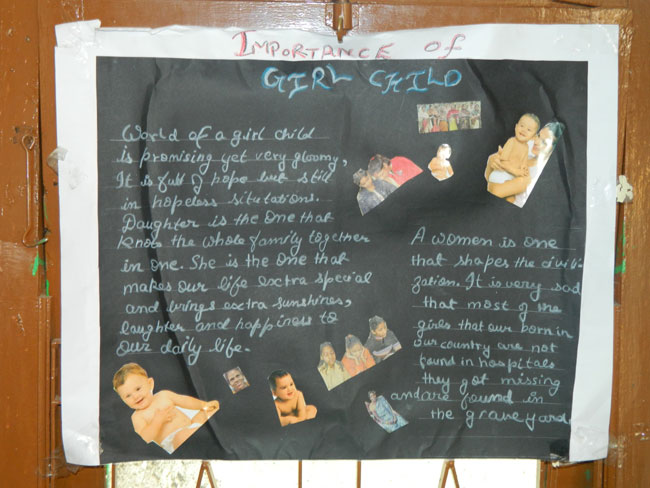 IMPORTANCE of
GIRL CHILD
World of a girl child
is promising yet very gloomy,
It is full of hope but still
in hopeless situtations.
Daughter is the one that
knots the whole family together
in one. She is the one that
makes our life extra special
and brings extra sunshines,
laughter and happiness to
our daily life.
A women is one
that shapes the civili-
zation. It is very sad
that most of the
girls that our born in
our country are not
found in hospitals
they got missing
and are found in
the graveyard.